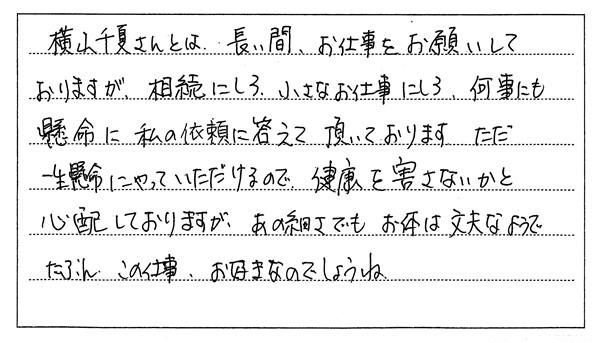 横山千夏さんとは、長い間、お仕事をお願いして
おりますが、相続にしろ、小さなお仕事にしろ、何事にも
懸命に私の依頼に答えて頂いております ただ
一生懸命にやっていただけるので、健康を害さないかと
心配しておりますが、あの細さでもお体は丈夫なようで
たぶん、この仕事、お好きなのでしょうね